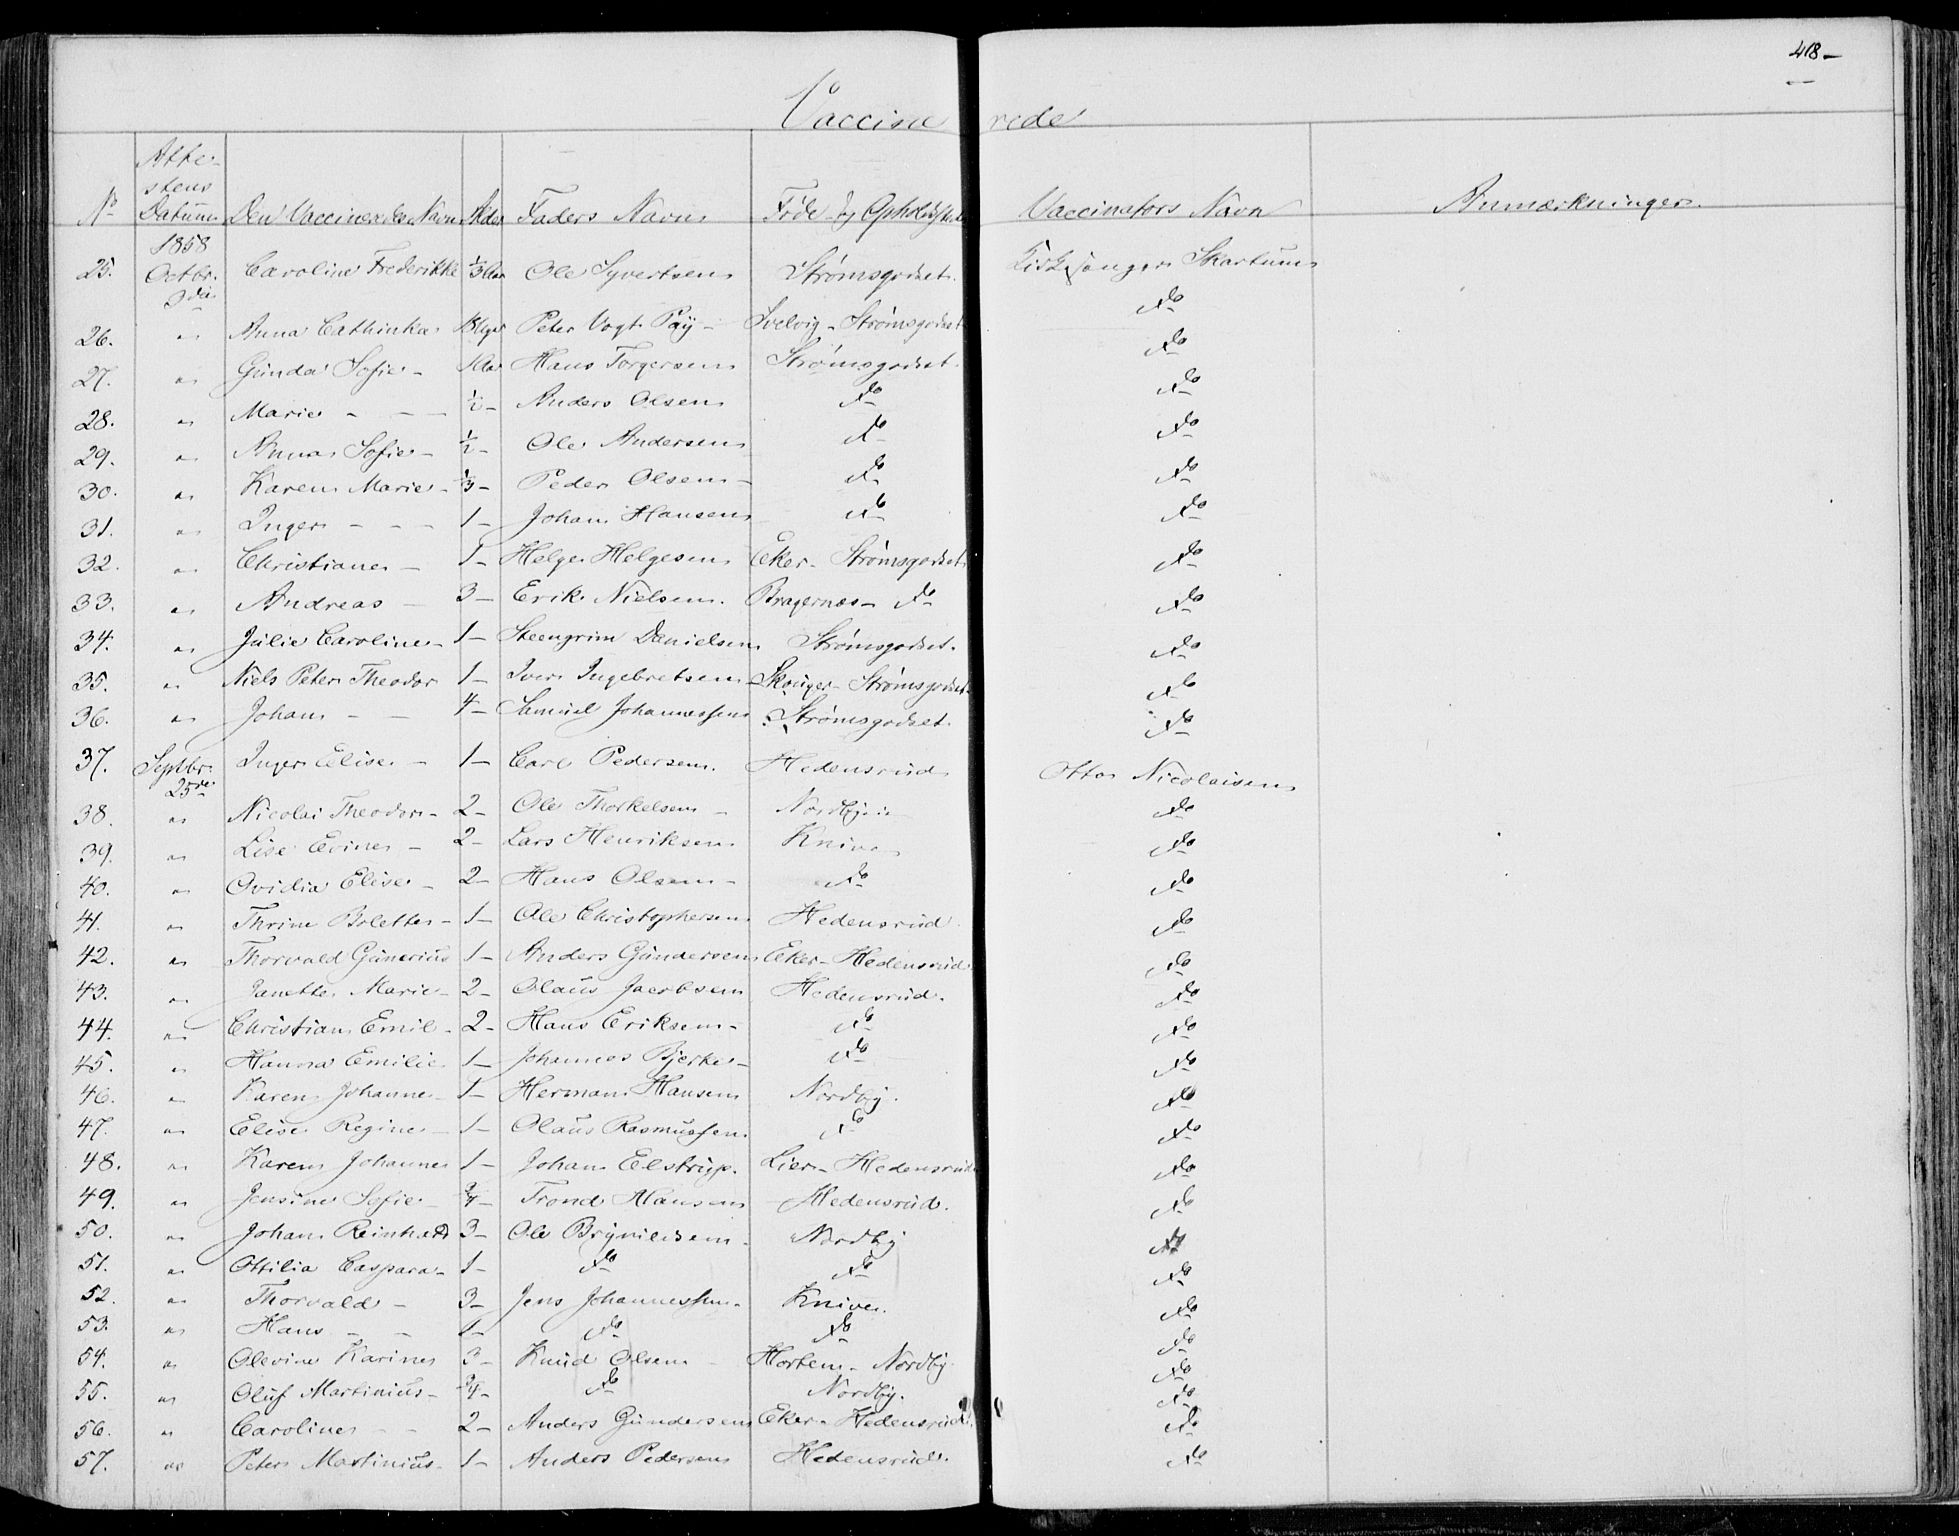 418 –
Vaccinerede
No | Attestens Datum | Den Vaccineredes Navn | Alder | Faders Navn | Føde- og Opholdssted | Vaccinators Navn | Anmærkninger
1858
25. | Octbr. 3die | Caroline Frederikke | 1/3 Aar | Ole Syvertsen | Strømsgodset. | Kirkesanger Skartum
26. | " | Anna Cathinka | Peter Vogt Paÿ – | Svelvig – Strømsgodset | do
27. | " | Gunda Sofie – | 1 Aar | Hans Torgersen | Strømsgodset. | do
28. | " | Marie – – – | 1/2 – | Anders Olsen | do | do
29. | " | Anna Sofie – | 1/2 – | Ole Andersen | do | do
30. | " | Karen Marie – | 1/3 – | Peder Olsen – | do | do
31. | " | Inger – – – | 1 – | Johan Hansen | do | do
32. | " | Christiane – | 1 – | Helge Helgesen | Eker – Strømsgodset | do
33. | " | Andreas – | 3 – | Erik Nielsen. | Bragernæs – do | do
34. | " | Julie Caroline – | 1 – | Steengrim Danielsen | Strømsgodset. | do
35. | " | Niels Peter Theodor | 1 – | Iver Ingebretsen – | Skouger – Strømsgodset | do
36. | " | Johan – – | 4 – | Samuel Johannessen | Strømsgodset. | do
37. | Septbr. 25de | Inger Elise – | 1 – | Carl Pedersen. | Hedensrud | Otto Nicolaisen
38. | " | Nicolai Theodor – | 2 – | Ole Thorkelsen – | Nordbyen | do
39. | " | Lise Evine – | 2 – | Lars Henriksen | Knive | do
40. | " | Ovidia Elise – | 2 – | Hans Olsen – | do | do
41. | " | Thrine Bolette – | 1 – | Ole Christophersen | Hedensrud | do
42. | " | Thorvald Gunerius | 1 – | Anders Gundersen | Eker – Hedensrud | do
43. | " | Janette Marie – | 2 – | Olaus Jacobsen | Hedensrud. | do
44. | " | Christian Emil – | 2 – | Hans Eriksen – | do | do
45. | " | Hanna Emilie | 1 – | Johannes Bjerke – | do | do
46. | " | Karen Johanne – | 1 – | Herman Hansen | Nordby. | do
47. | " | Elise Regine – | 1 – | Olaus Rasmussen | do | do
48. | " | Karen Johanne | 1 – | Johan Elstrup. | Lier – Hedensrud | do
49. | " | Jensine Sofie – | 3/4 – | Trond Hansen | Hedensrud. | do
50. | " | Johan Reinhard | 3 – | Ole Brynildsen – | Nordby | do
51. | " | Ottilia Caspara – | 1 – | do | do | do
52. | " | Thorvald – | 3 – | Jens Johannessen – | Knive. | do
53. | " | Hans – – | 1 – | do | do | do
54. | " | Olevine Karine | 3 – | Knud Olsen – | Horten – Nordby. | do
55. | " | Oluf Martinius – | 3/4 – | do | Nordby. | do
56. | " | Caroline – – | 2 – | Anders Gundersen | Eker – Hedensrud. | do
57. | " | Peter Martinius – | 1 – | Anders Pedersen | Hedensrud. | do